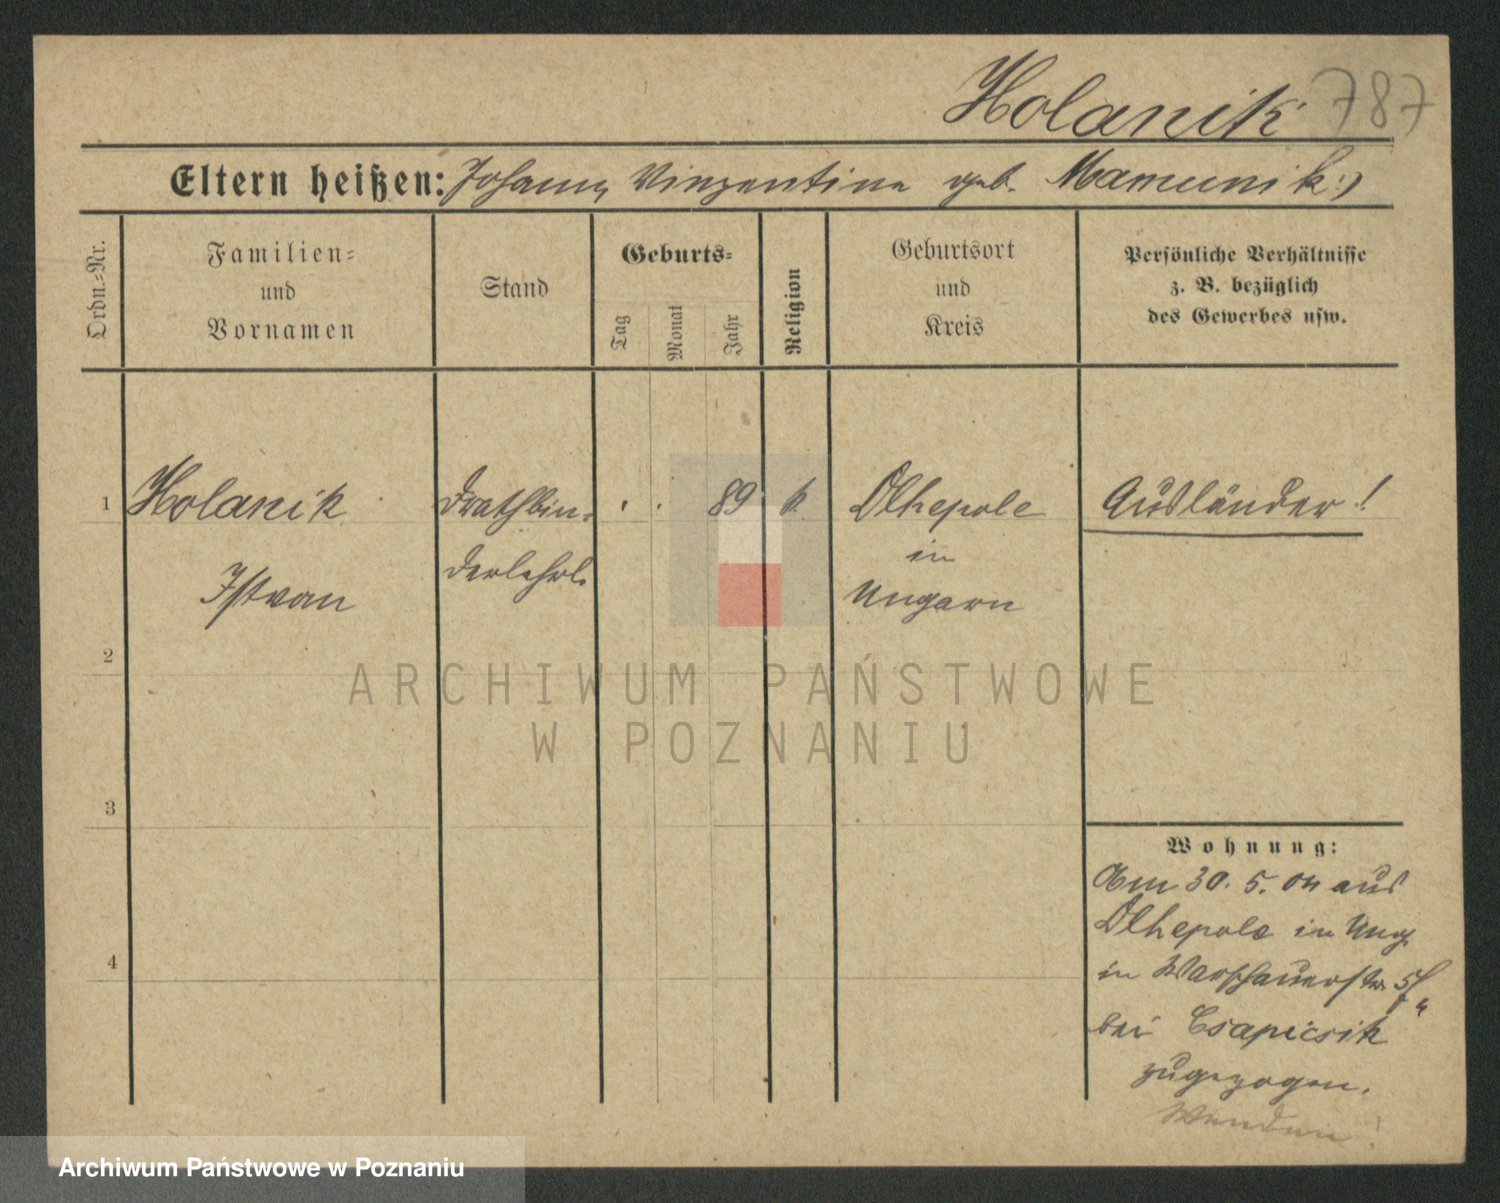 Holanik 787
Eltern heißen: Johann, Vinzentine geb. Mamunik:)
Ordn.-Nr.
Familien-
und
Vornamen
Stand
Geburts-
Tag
Monat
Jahr
Religion
Geburtsort
und
Kreis
Persönliche Verhältnisse
z. B. bezüglich
des Gewerbes usw.
1 Holanik Drathbin- . . 89 k. Olhepole Ausländer!
Istvan derlehrl. in
Ungarn
2
3
4
Wohnung:
Am 30. 5. 04 aus
Olhepole in Ung.
in Warschauerstr.
bei Csapicsik
zugezogen.
Wenden!
ARCHIWUM PAŃSTWOWE
W POZNANIU
Archiwum Państwowe w Poznaniu